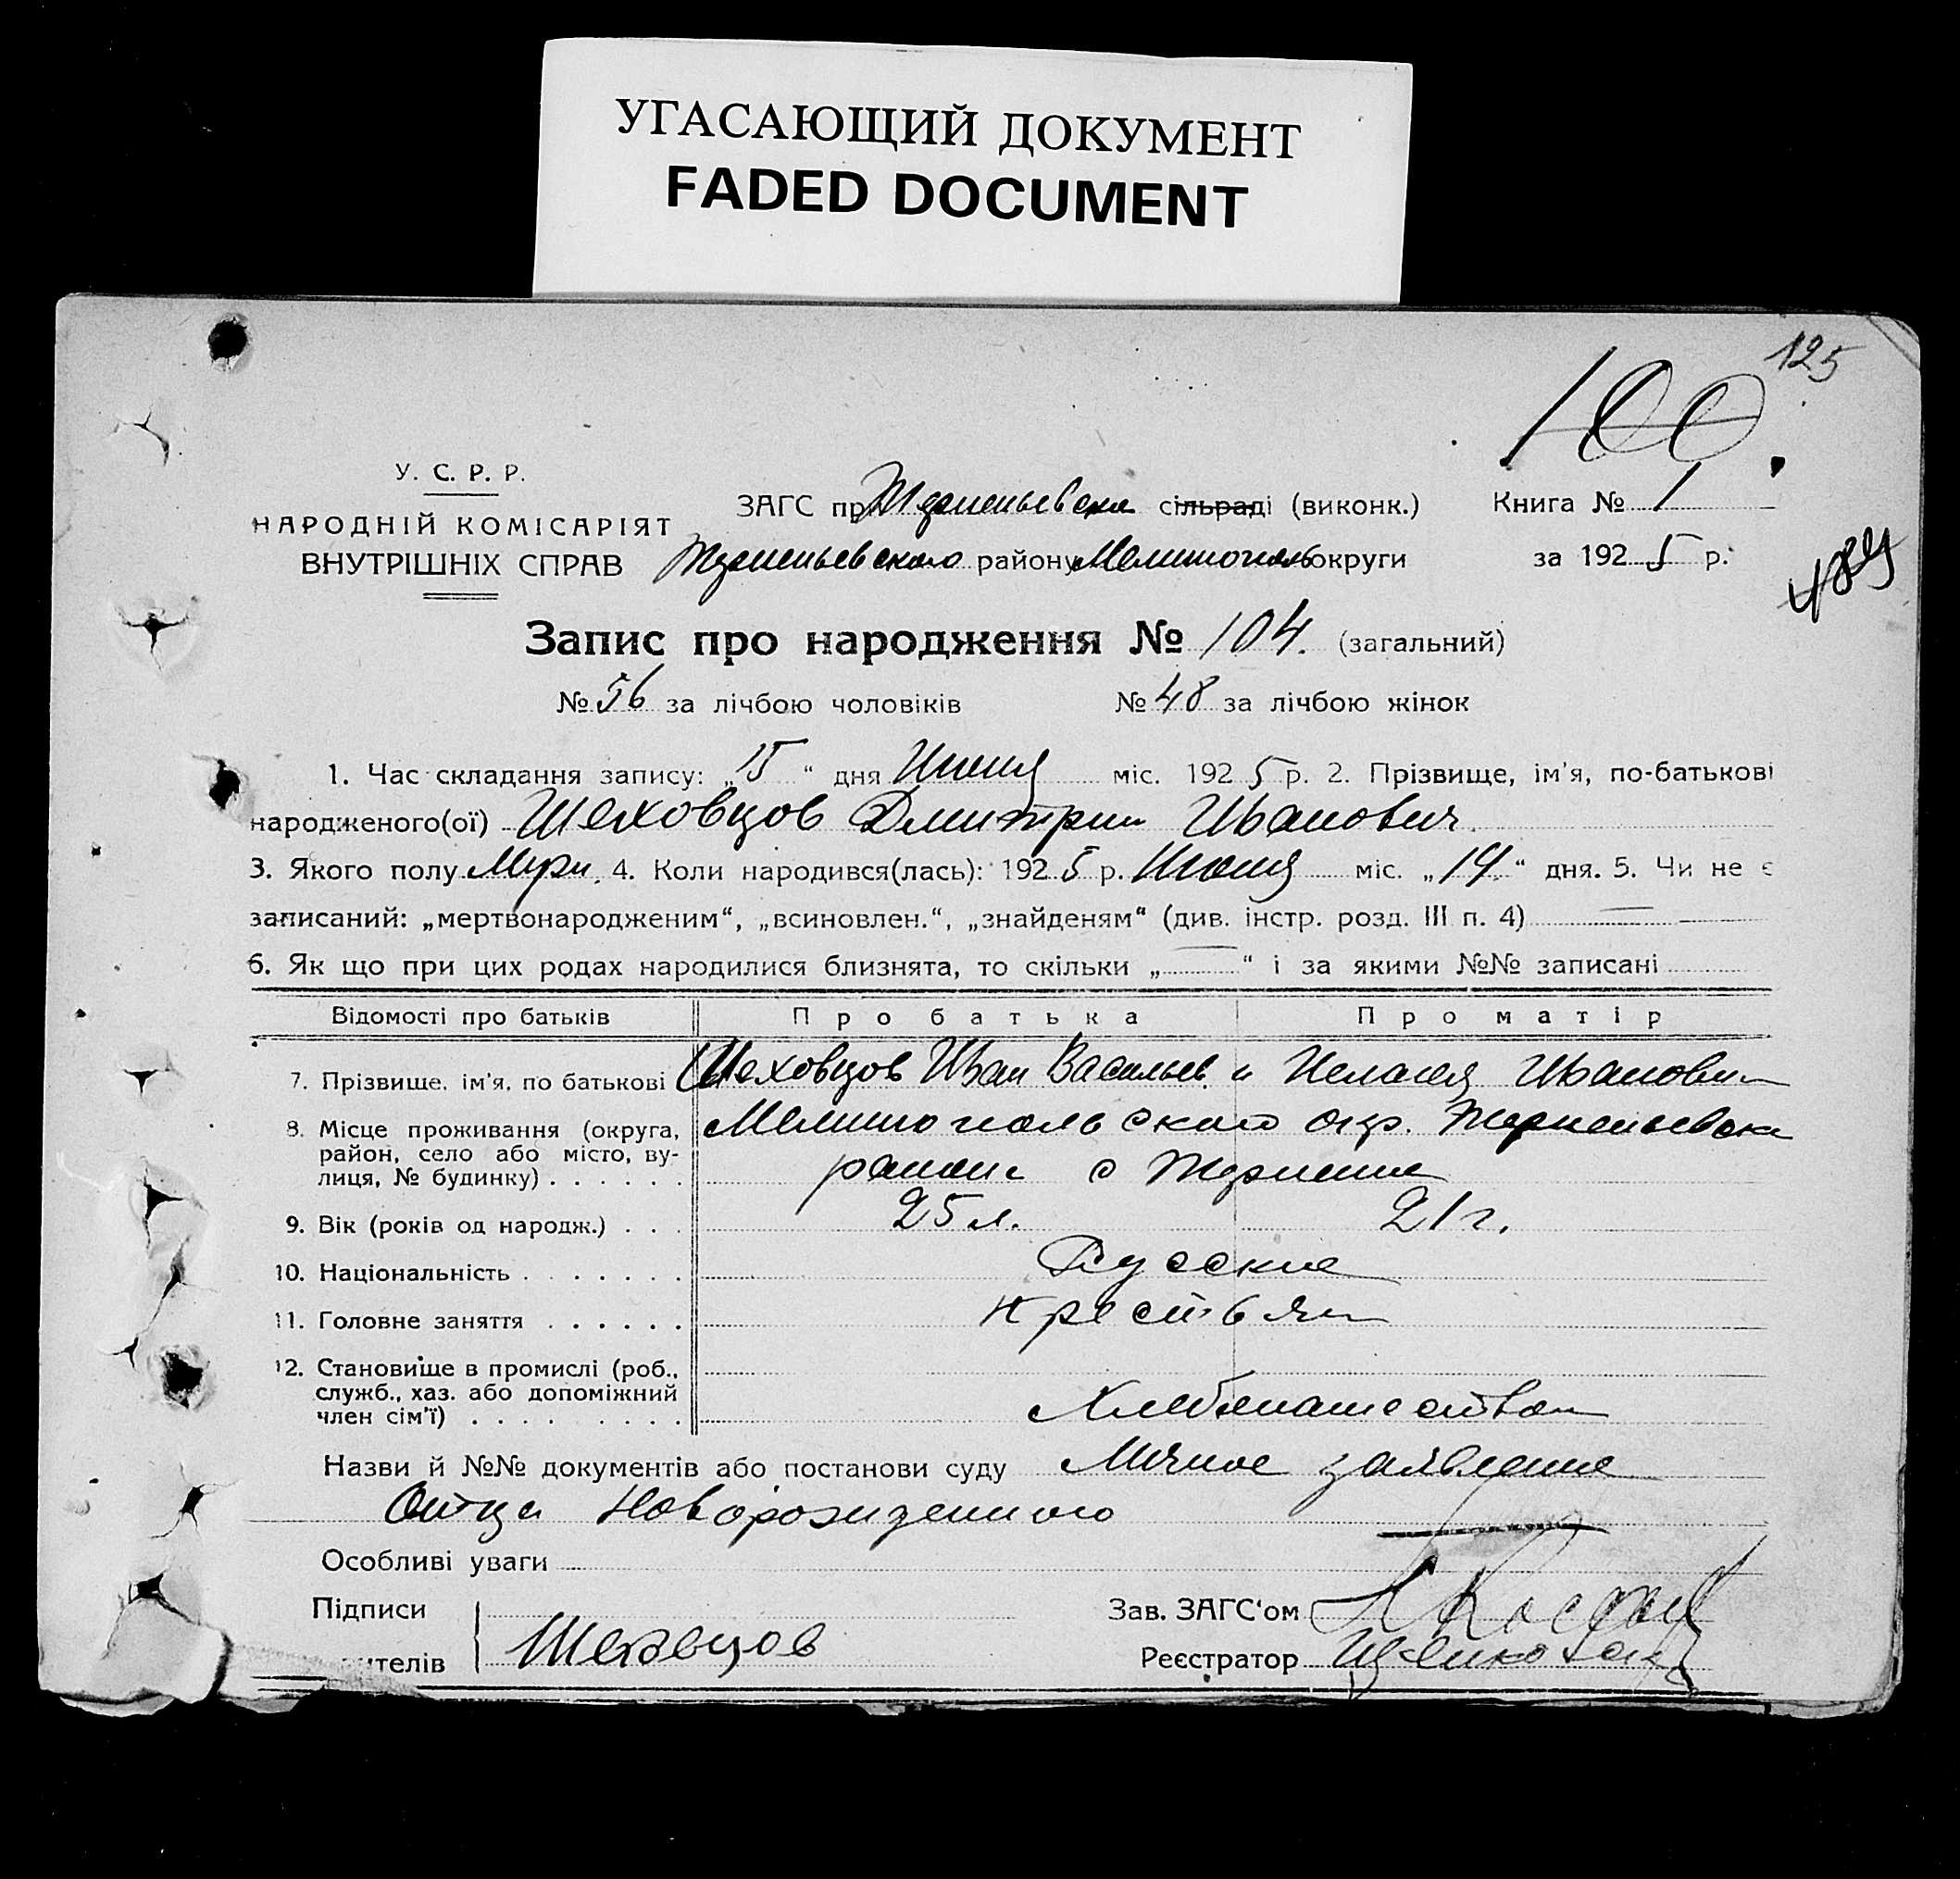 УГАСАЮЩИЙ ДОКУМЕНТ
FADED DOCUMENT
125
100.
У. С. Р. Р.
НАРОДНІЙ КОМІСАРІЯТ
ВНУТРІШНІХ СПРАВ
ЗАГС при сільраді (виконк.)
Книга № 1
району округи
за 1925 р.
489
Запис про народження № 104. (загальний)
№ 56 за лічбою чоловіків № 48 за лічбою жінок
1. Час складання запису: „15“ дня Июня міс. 1925 р. 2. Прізвище, ім'я, по-батькові
народженого(ої) Шеховцов Дмитрий Иванович
3. Якого полу Муж. 4. Коли народився(лась): 1925 р. Июня міс. „14.“ дня. 5. Чи не є
записаний: „мертвонародженим“, „всиновлен.“, „знайденям“ (див. інстр. розд. III п. 4) —
6. Як що при цих родах народилися близнята, то скільки „—“ і за якими №№ записані
Відомості про батьків Про батька Про матір
7. Прізвище, ім'я, по батькові Шеховцов Иван Васильев. и Пелагея Ивановн
8. Місце проживання (округа, район, село або місто, вулиця, № будинку) Мелитопольского окр.
района с
9. Вік (років од народж.) 25 л. 21 г.
10. Національність Русские
11. Головне заняття Крестьян
12. Становище в промислі (роб., служб., хаз. або допоміжний член сім'ї) Хлебопашество
Назви й №№ документів або постанови суду Личное заявление
Отца Новорожденного
Особливі уваги
Підписи
ителів Шеховцов
Зав. ЗАГС'ом
Реєстратор